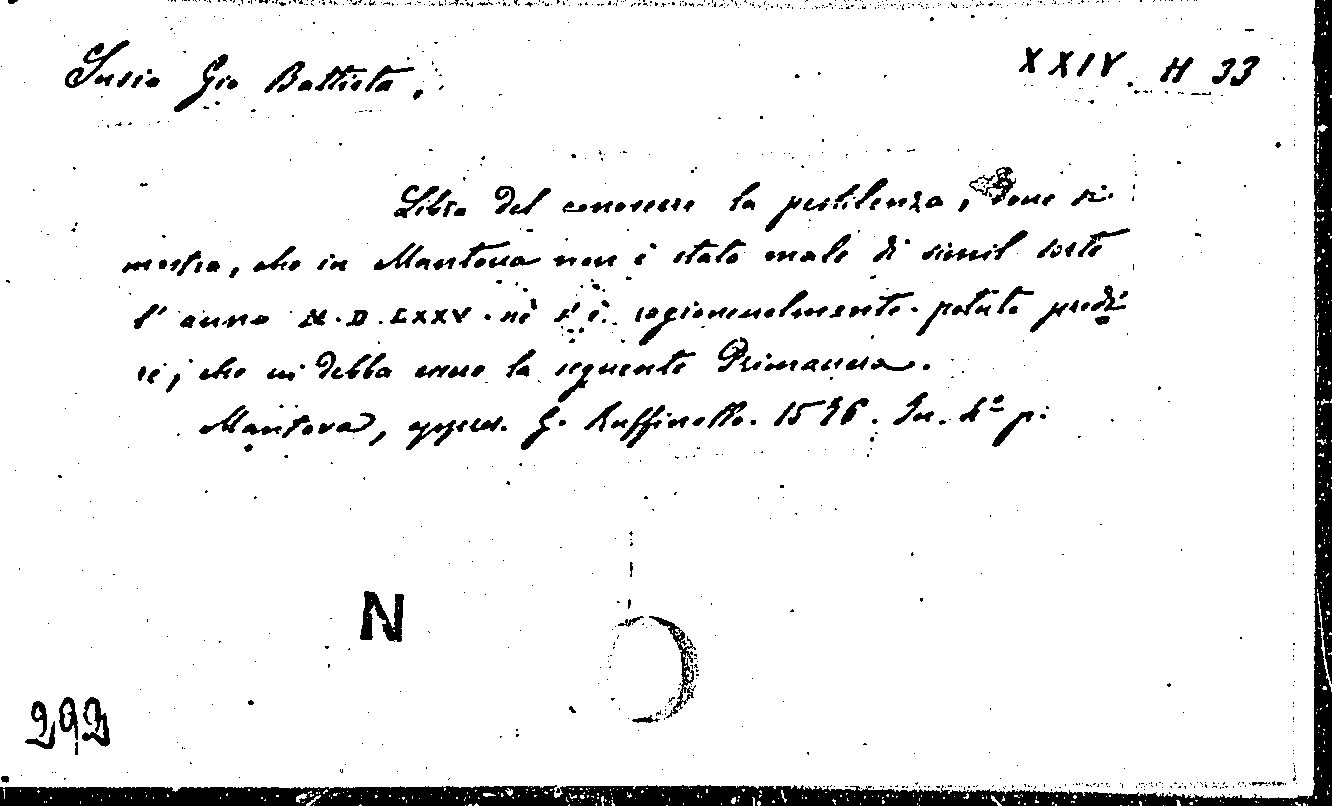 Susio Gio Battista. XXIV H 33
Libro del conoscere la pestilenza, dove si
mostra, che in Mantova non è stato male di simil sorte
l'anno M.D.LXXV. nè s'è ragionevolmente potuto predi
re, che vi debba essere la seguente Primavera.
Mantova, appress. G. Ruffinello. 1576. In. 4º p.
N
292